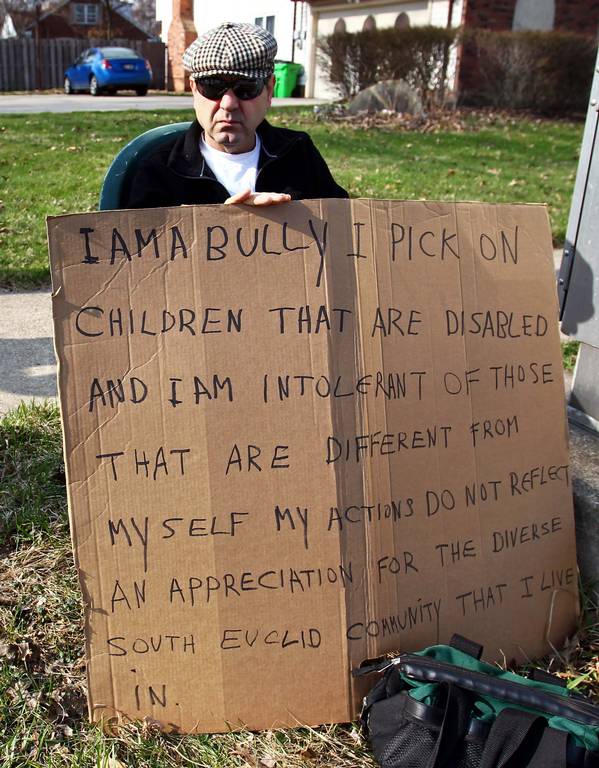 I AM A BULLY I PICK ON
CHILDREN THAT ARE DISABLED
AND I AM INTOLERANT OF THOSE
THAT ARE DIFFERENT FROM
MY SELF MY ACTIONS DO NOT REFLECT
AN APPRECIATION FOR THE DIVERSE
SOUTH EUCLID COMMUNITY THAT I LIVE
IN.